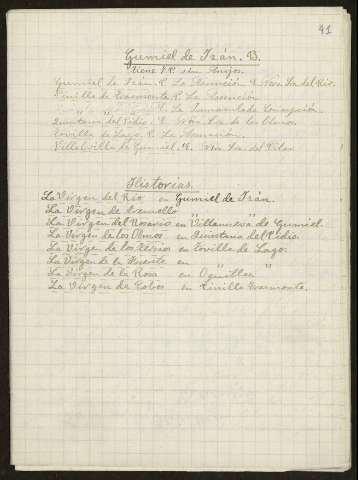 41
Gumiel de Izán. B.
Tiene P.R. sin Anejos.
Gumiel de Izán. R. La Asunción E. Ntra. Sra. del Río.
Pinilla de Trasmonte R. La Asunción
R. La Inmaculada Concepción
Quintana del Pidio. E. Ntra. Sra. de los Olmos
Tovilla de Lago. R. La Asunción.
Villalvilla de Gumiel. E. Ntra. Sra. del Pilar
Historias.
La Virgen del Río en Gumiel de Izán.
La Virgen de Tremello " "
La Virgen del Rosario en Villanueva de Gumiel.
La Virgen de los Olmos en Quintana del Pidio.
La Virgen de los en Tovilla de Lago.
La Virgen de la en " "
La Virgen de la Rosa en Oquillas
La Virgen de Cobos en Pinilla Trasmonte.